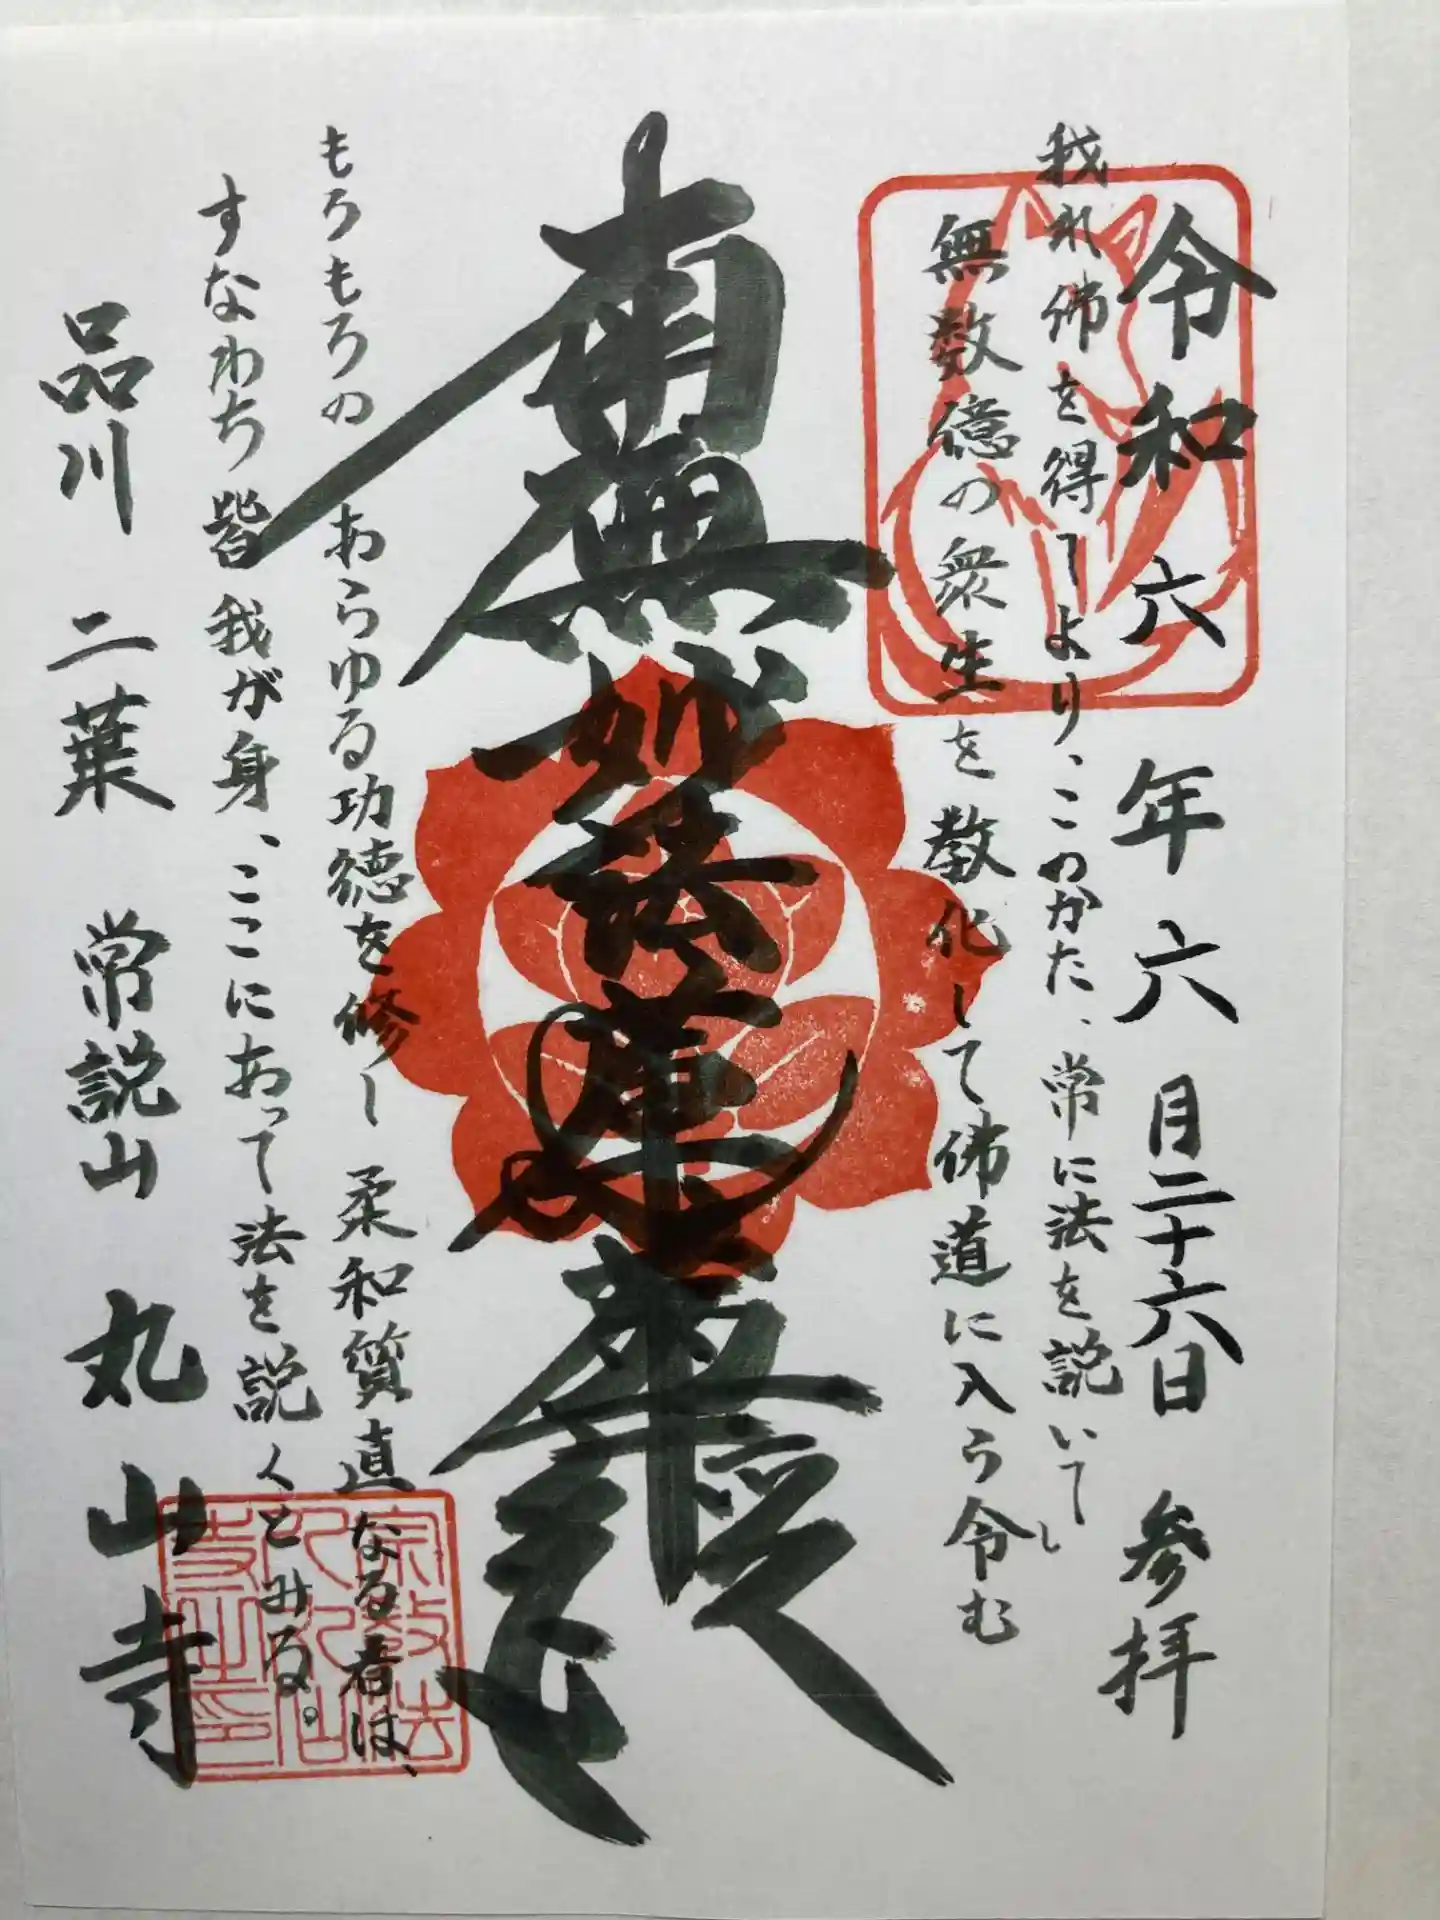 令和六年六月二十六日 参拝
我れ佛を得てより、このかた、常に法を説いて
無数億の衆生を教化して佛道に入ら令む
南無妙法蓮華経
もろもろの あらゆる功徳を修し 柔和質直なる者は、
すなわち皆我が身、ここにあって法を説くとみる。
品川 二葉 常説山 丸山寺